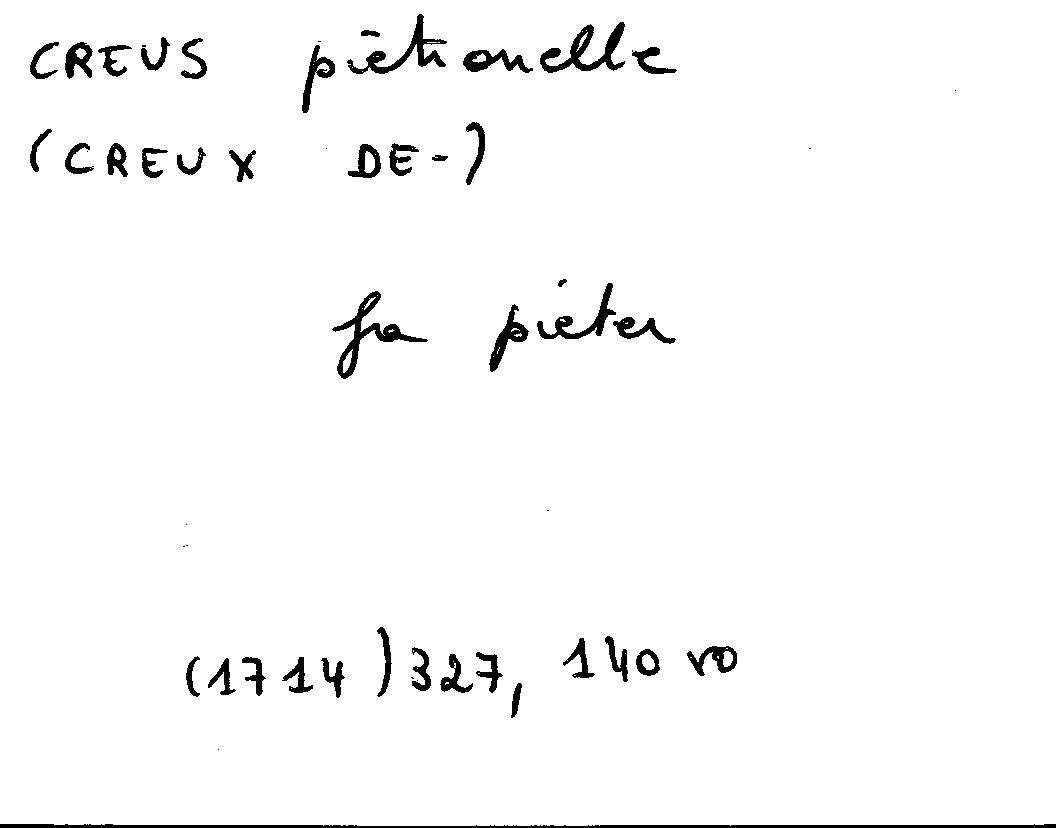 CREUS piētronelle
(CREUX DE-)
fa pieter
(1714) 327, 140 ro